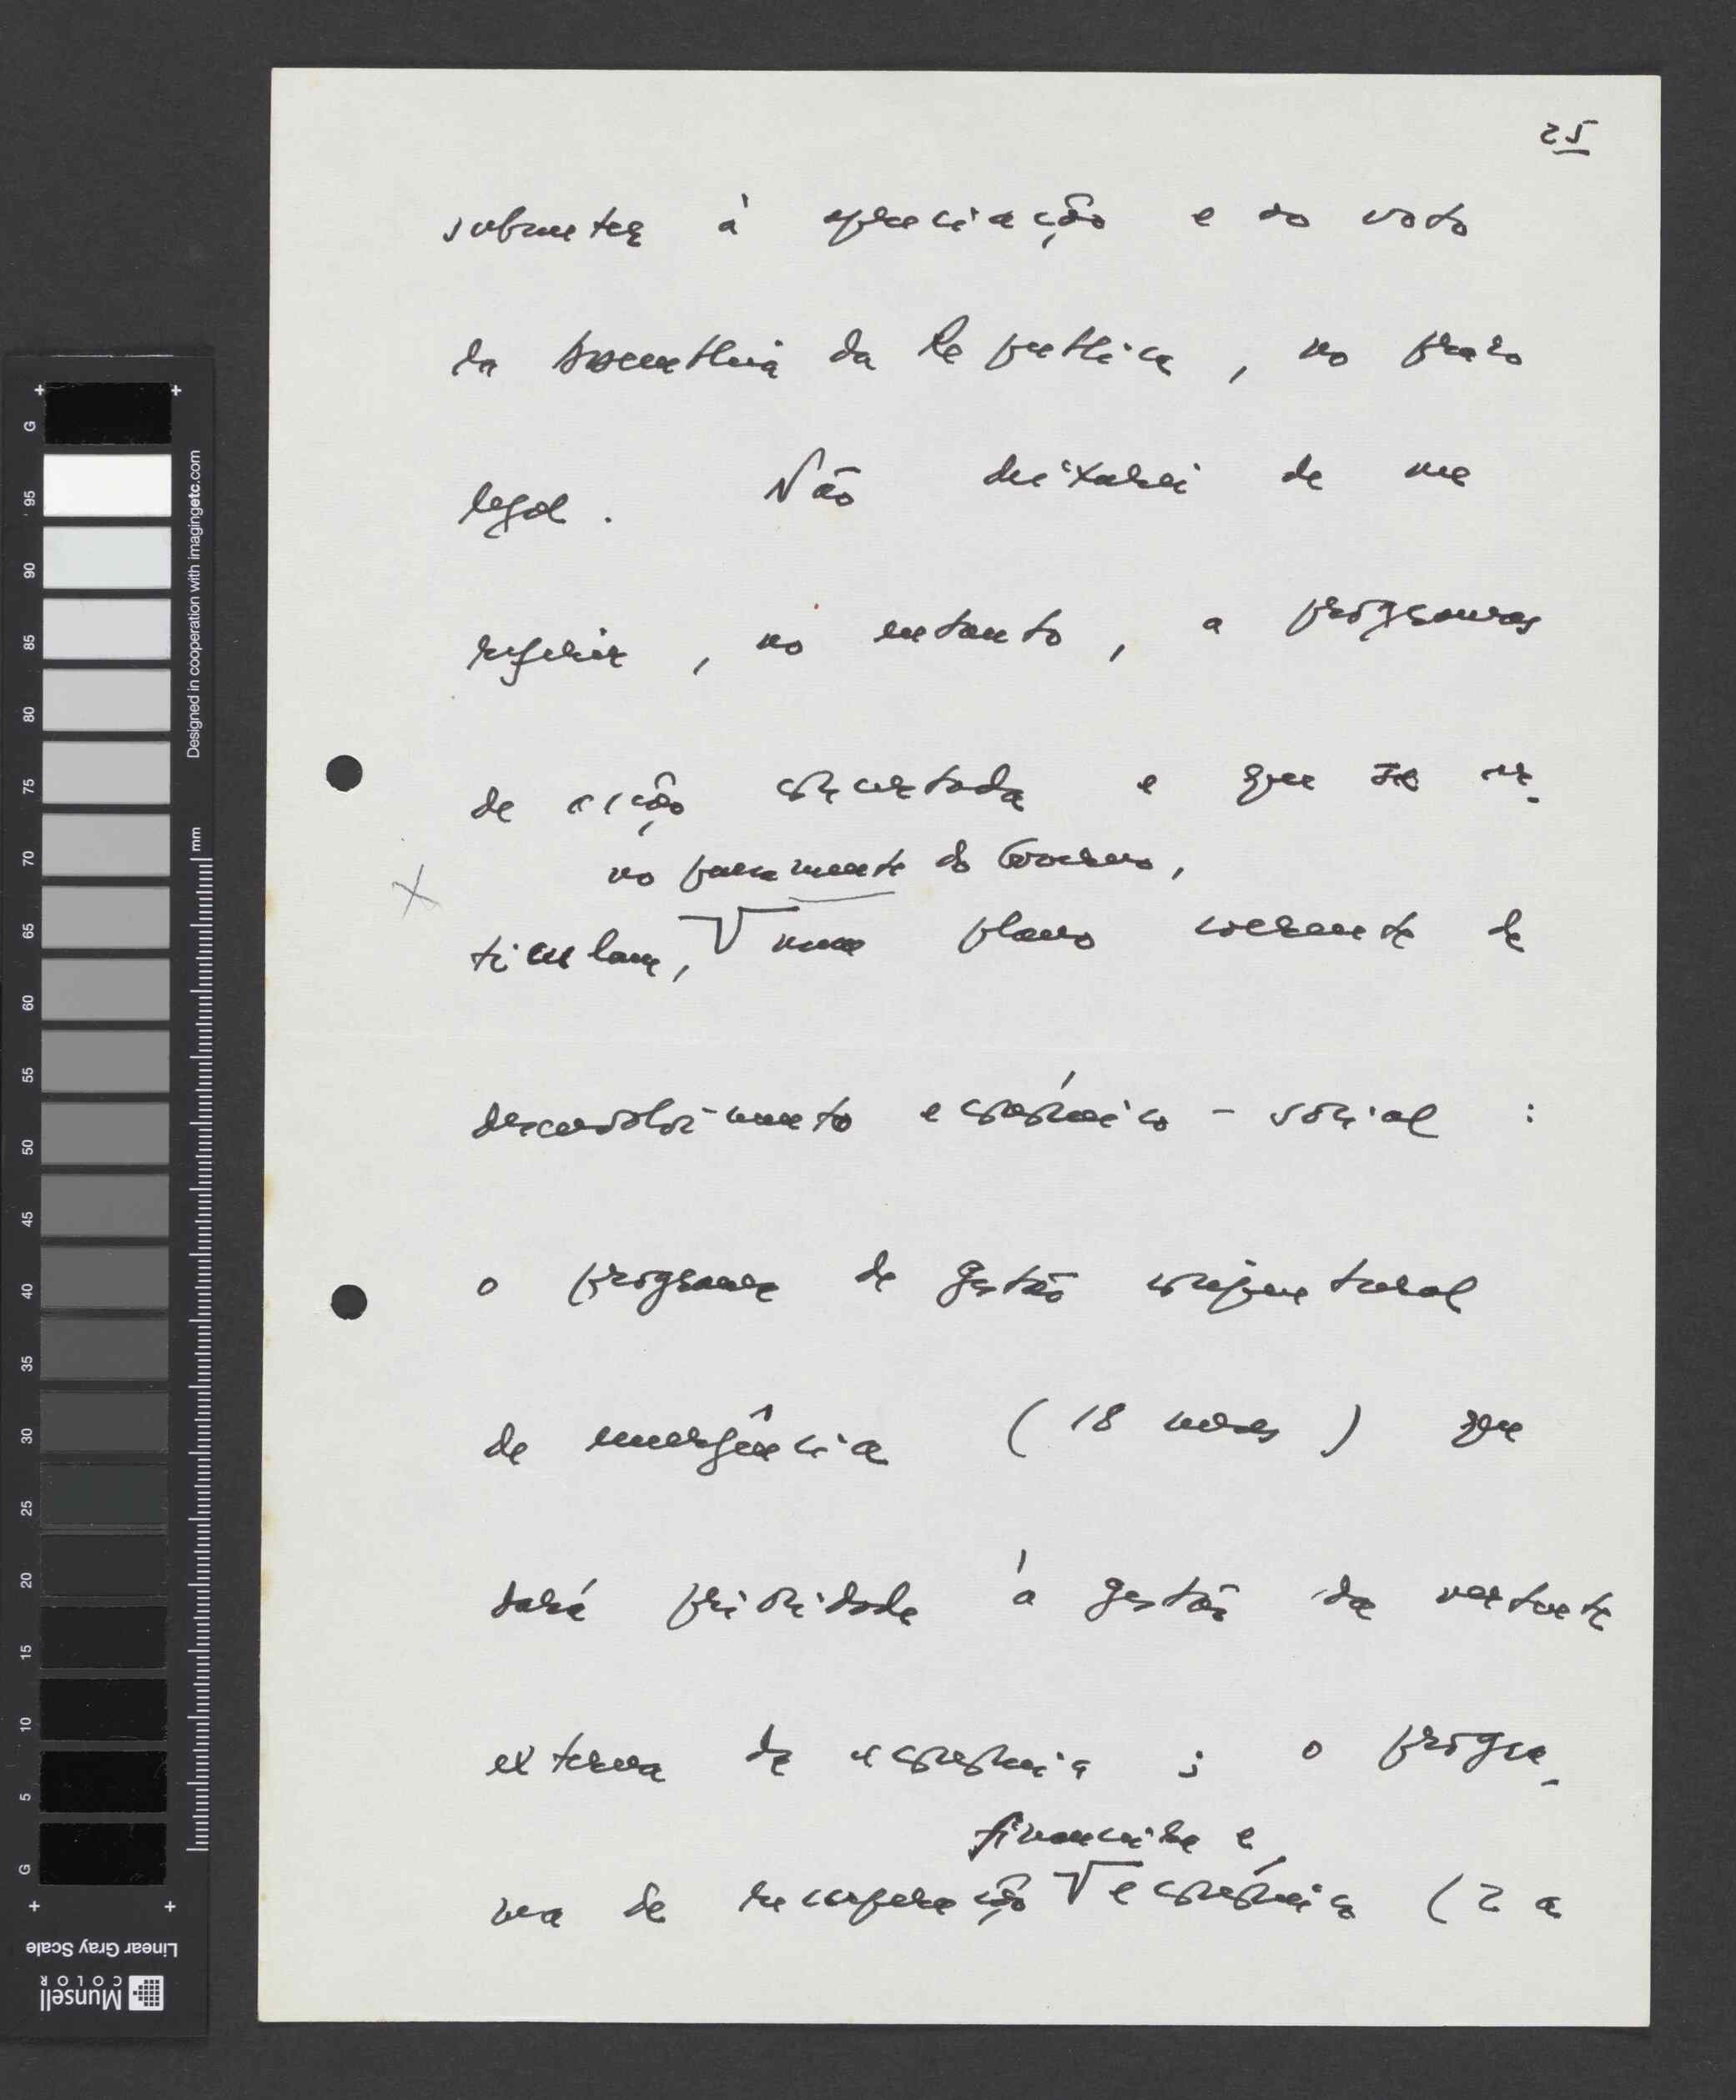 25
submeter à apreciação e ao voto
da Assembleia da República, no prazo
legal. Não deixarei de me
referir, no entanto, a programas
de acção concertada e que se ar-
no fundamente do Governo,
ticulam, num plano coerente de
desenvolvimento económico-social :
o programa de gestão conjuntural
de emergência (18 meses) que
dará prioridade à gestão da vertente
externa da economia ; o progra-
financeira e
ma de recuperação económica (2 a
G
95
90
85
80
75
70
65
60
55
50
45
40
35
30
25
20
15
10
5
G
mm
Designed in cooperation with imagingetc.com
Linear Gray Scale
Munsell
COLOR